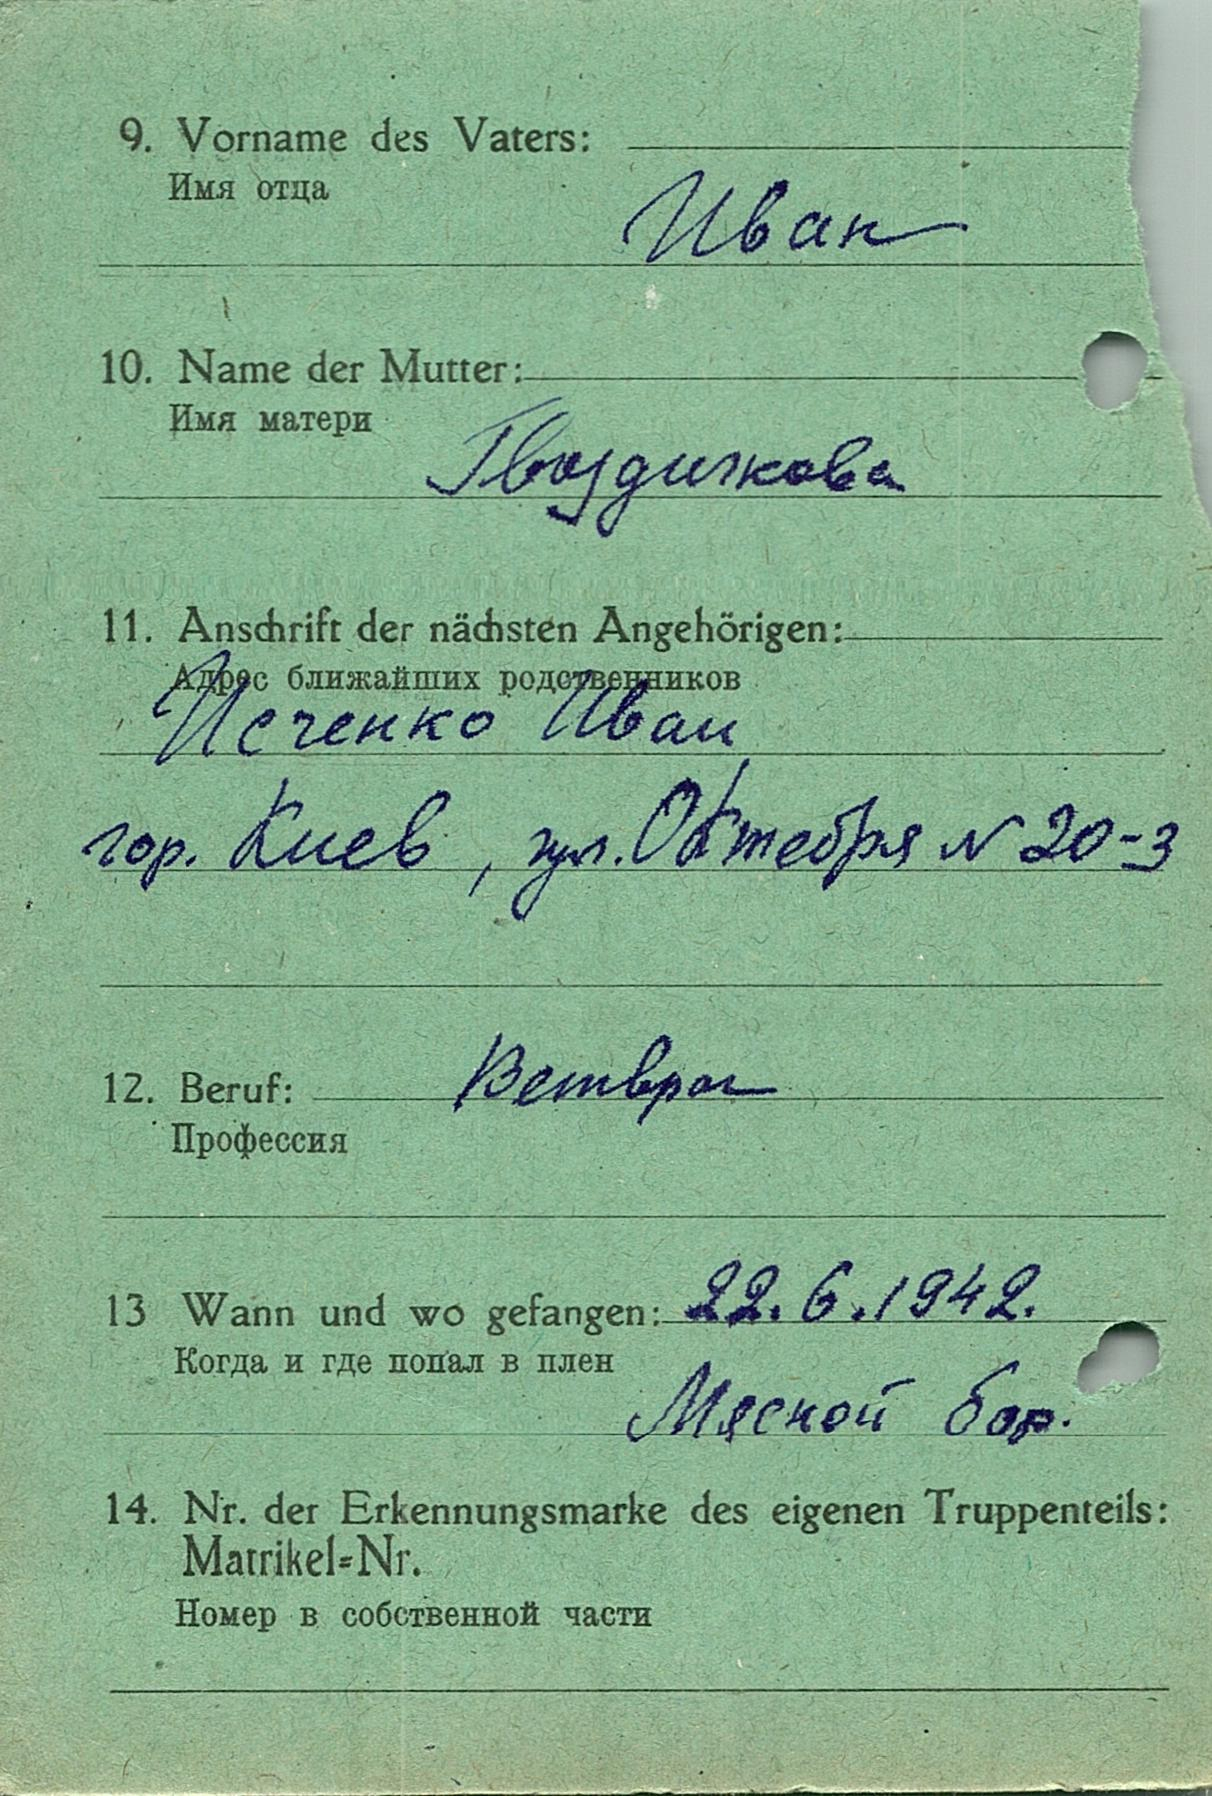 9. Vorname des Vaters:
Имя отца
Иван
10. Name der Mutter:
Имя матери
Гвоздикова
11. Anschrift der nächsten Angehörigen:
Адрес ближайших родственников
Исченко Иван
гор. Киев, ул. Октебря N 20-3
12. Beruf: Ветврач
Профессия
13 Wann und wo gefangen: 22.6.1942.
Когда и где попал в плен
Мясной бор.
14. Nr. der Erkennungsmarke des eigenen Truppenteils:
Matrikel=Nr.
Номер в собственной части